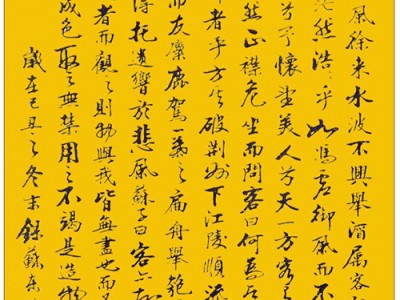 風徐来水波不興舉酒屬客
茫然浩浩乎如馮虚御風而不
兮予懷望美人兮天一方客
然正襟危坐而問客曰何為其
者乎方其破荆州下江陵順流
而友麋鹿駕一葉之扁舟舉匏
得托遺響於悲風蘇子曰客亦知
者而觀之則物與我皆無盡也而又
成色取之無禁用之不竭是造物
歲在己丑之冬末錄蘇東